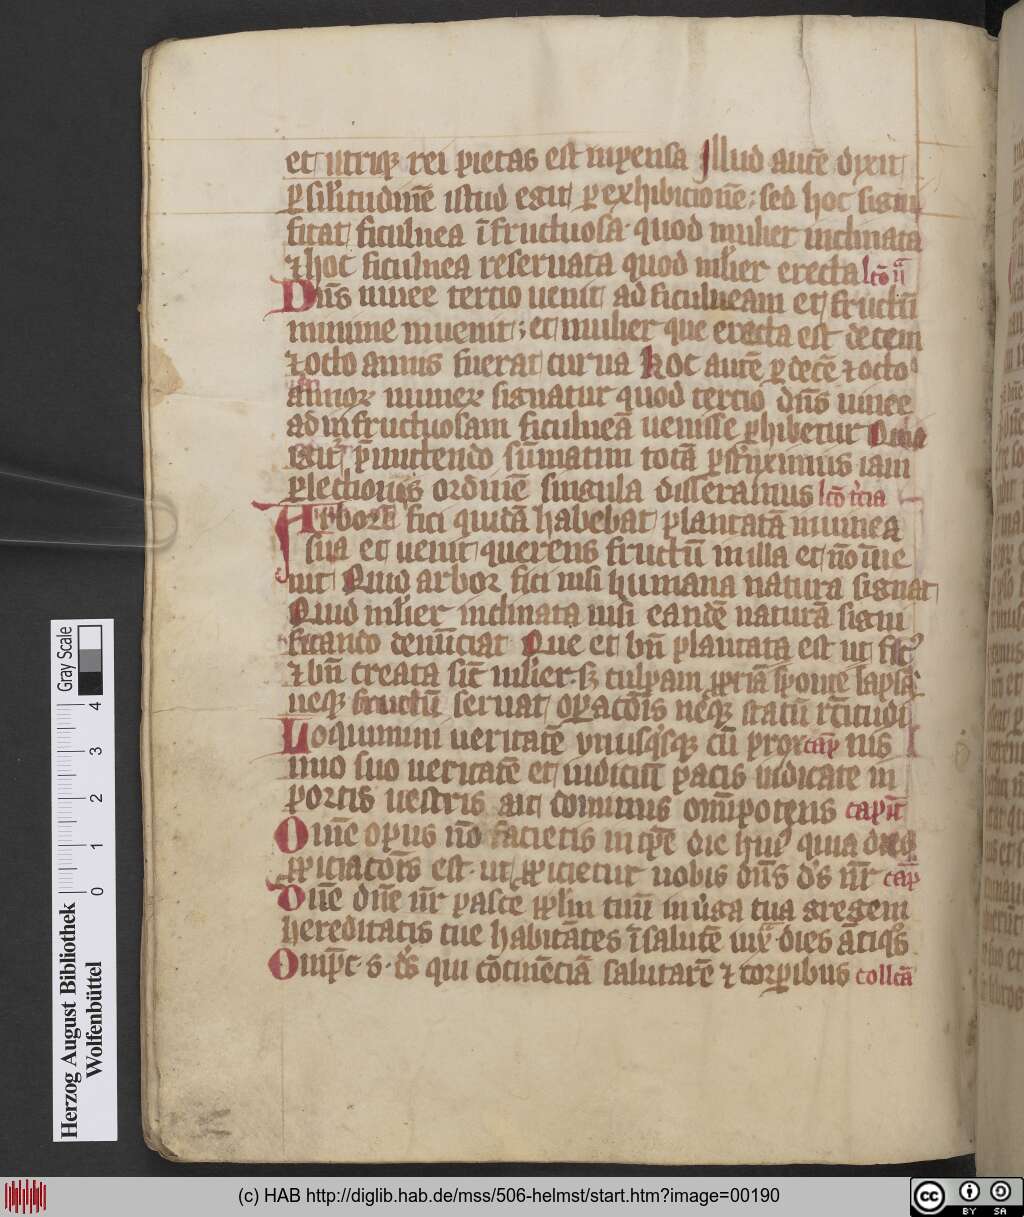 et utriq; rei pietas est inpensa Illud autē dixit
ꝑ silitudinē istud egit ꝑ exhibicionē; sed hoc signi
ficat ficulnea īfructuosa quod mulier inclinata
⁊ hoc ficulnea reseruata quod mlier erecta lcō ii
Dn̄s uinee tercio uenit ad ficulneam et fructū
minime inuenit; et mulier que erecta est decem
⁊ octo annis fuerat curua Hoc autē ꝑ decē ⁊ octo
annoꝝ numeꝝ signatur quod tercio dn̄s uinee
ad infructuosam ficulneā uenisse ꝑhibetur Quia
totā ꝑstrīximus iam
ꝑ lectionis ordinē singula disseramus lcō tcia
Arborē fici quidā habebat plantatā in uinea
sua et uenit querens fructū in illa et nō īue
nit Quid arbor fici nisi humana natura signat
Quid mlier inclinata nisi eandē naturā signi
ficando denūciat Que et bn̄ plantata est ut fic9
⁊ bn̄ creata sic̄ mlier sꝫ culpam ꝓpriā sponte lapsa
neq; fructū seruat oꝑacōis neq; statū rc̄itudi
Loquimini ueritatē vnusqsq; cū proxi cap̄ nis I
mo suo ueritatē et iudiciū pacis iudicate in
portis uestris ait dominus omīpotens capit̄
Omē opus nō facietis in tꝑe die hui9 quia dies
ꝓpiciacōis est ut ꝓpicietur uobis dn̄s ds nr̄ cap̄
Dūe dn̄e nr̄ pasce pplm tuū in uirga tua gregem
hereditatis tue habitātes ī salutē iuxa dies ātiqos
Omp̄t s ds qui cōtinēciā salutarē ⁊ corꝑibus collcā
Gray Scale
0 1 2 3 4
Herzog August Bibliothek
Wolfenbüttel
(c) HAB http://diglib.hab.de/mss/506-helmst/start.htm?image=00190
cc BY SA